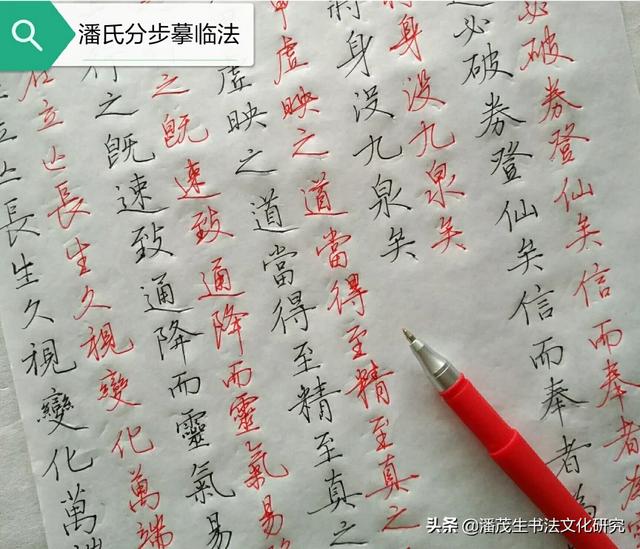 潘氏分步摹临法
必破券登仙矣信而奉者為
必破券登仙矣信而奉者為
身没九泉矣
身没九泉矣
虛映之道當得至精至真之
虛映之道當得至精至真之
之既速致通降而靈氣易
之既速致通降而靈氣易
在立亡長生久視變化萬端
立亡長生久視變化萬端
头条 @潘茂生书法文化研究